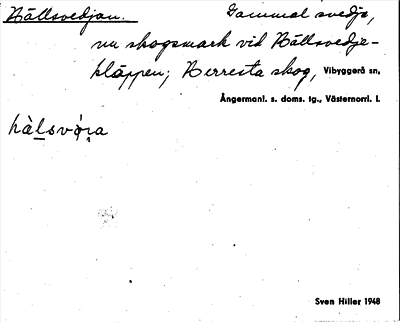 Hällsvedjan. Gammal svedje,
nu skogsmark vid Hällsvedje-
kläppen; Berresta skog, Vibyggerå sn,
Ångermanl. s. doms. tg., Västernorrl. l.
Sven Hiller 1948